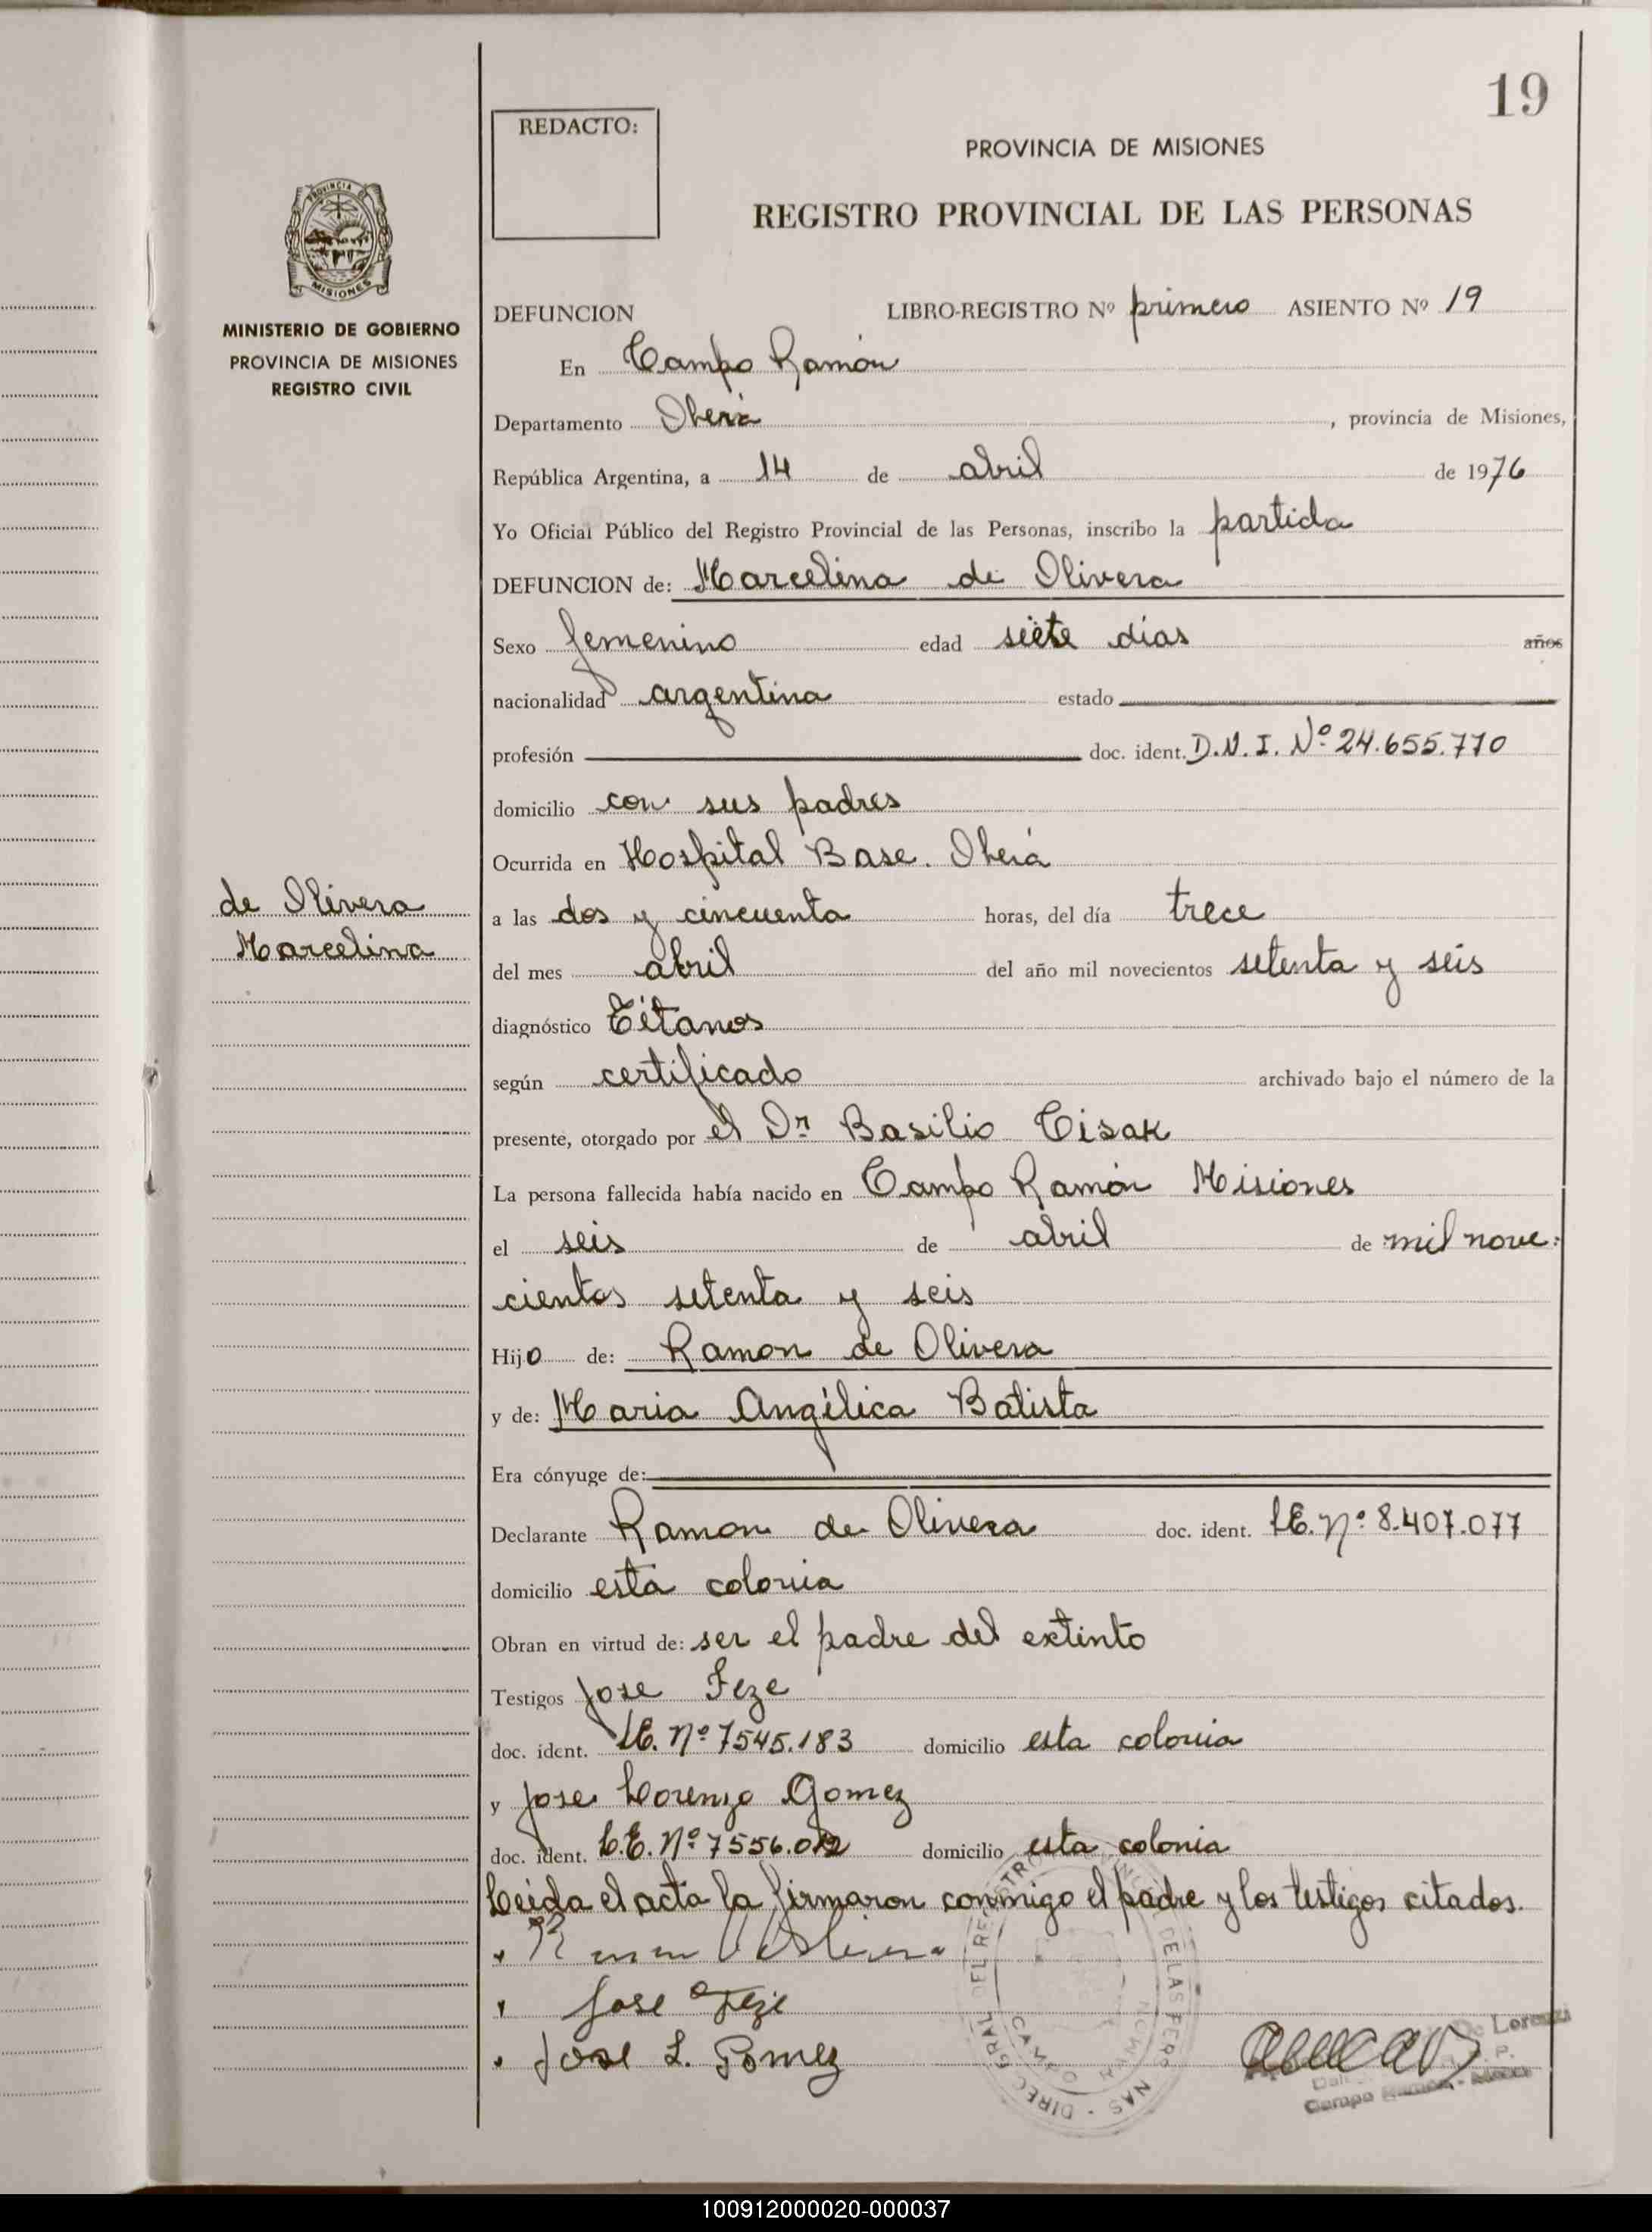 19
REDACTO:
PROVINCIA DE MISIONES
REGISTRO PROVINCIAL DE LAS PERSONAS
PROVINCIA
MISIONES
MINISTERIO DE GOBIERNO
PROVINCIA DE MISIONES
REGISTRO CIVIL
DEFUNCION LIBRO-REGISTRO Nº primero ASIENTO Nº 19
En Campo Ramón
Departamento Oberá, provincia de Misiones,
República Argentina, a 14 de abril de 1976
Yo Oficial Público del Registro Provincial de las Personas, inscribo la partida
DEFUNCION de: Marcelina de Olivera
Sexo femenino edad siete días años
nacionalidad argentina estado
profesión doc. ident. D.N.I. Nº 24.655.770
domicilio con sus padres
Ocurrida en Hospital Base. Oberá
de Olivera
Marcelina
a las dos y cincuenta horas, del día trece
del mes abril del año mil novecientos setenta y seis
diagnóstico Tétanos
según certificado archivado bajo el número de la
presente, otorgado por el Dr Basilio Cisak
La persona fallecida había nacido en Campo Ramón Misiones
el seis de abril de mil nove:
cientos setenta y seis
Hijo de: Ramon de Olivera
y de: Maria Angélica Batista
Era cónyuge de:
Declarante Ramon de Olivera doc. ident. L.E. nº 8.407.077
domicilio esta colonia
Obran en virtud de: ser el padre del extinto
Testigos Jose Feze
doc. ident. L.E. Nº 7545.183 domicilio esta colonia
y Jose Lorenzo Gomez
doc. ident. L.E. Nº 7556.012 domicilio esta colonia
Leida el acta la firmaron conmigo el padre y los testigos citados.
Ramon de Olivera
Jose Feze
Jose L. Gomez
De Lorenzi
Campo Ramón - Mnes
DIREC. GRAL. DEL REGISTRO PROVINCIAL DE LAS PERSONAS
CAMPO RAMON
100912000020-000037